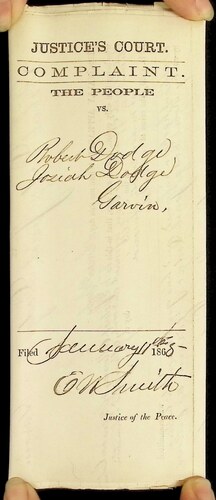 JUSTICE'S COURT.
COMPLAINT.
THE PEOPLE
vs.
Robert Dodge
Josiah Dodge
Garvin,
Filed January 11th 1865
E W Smith
Justice of the Peace.